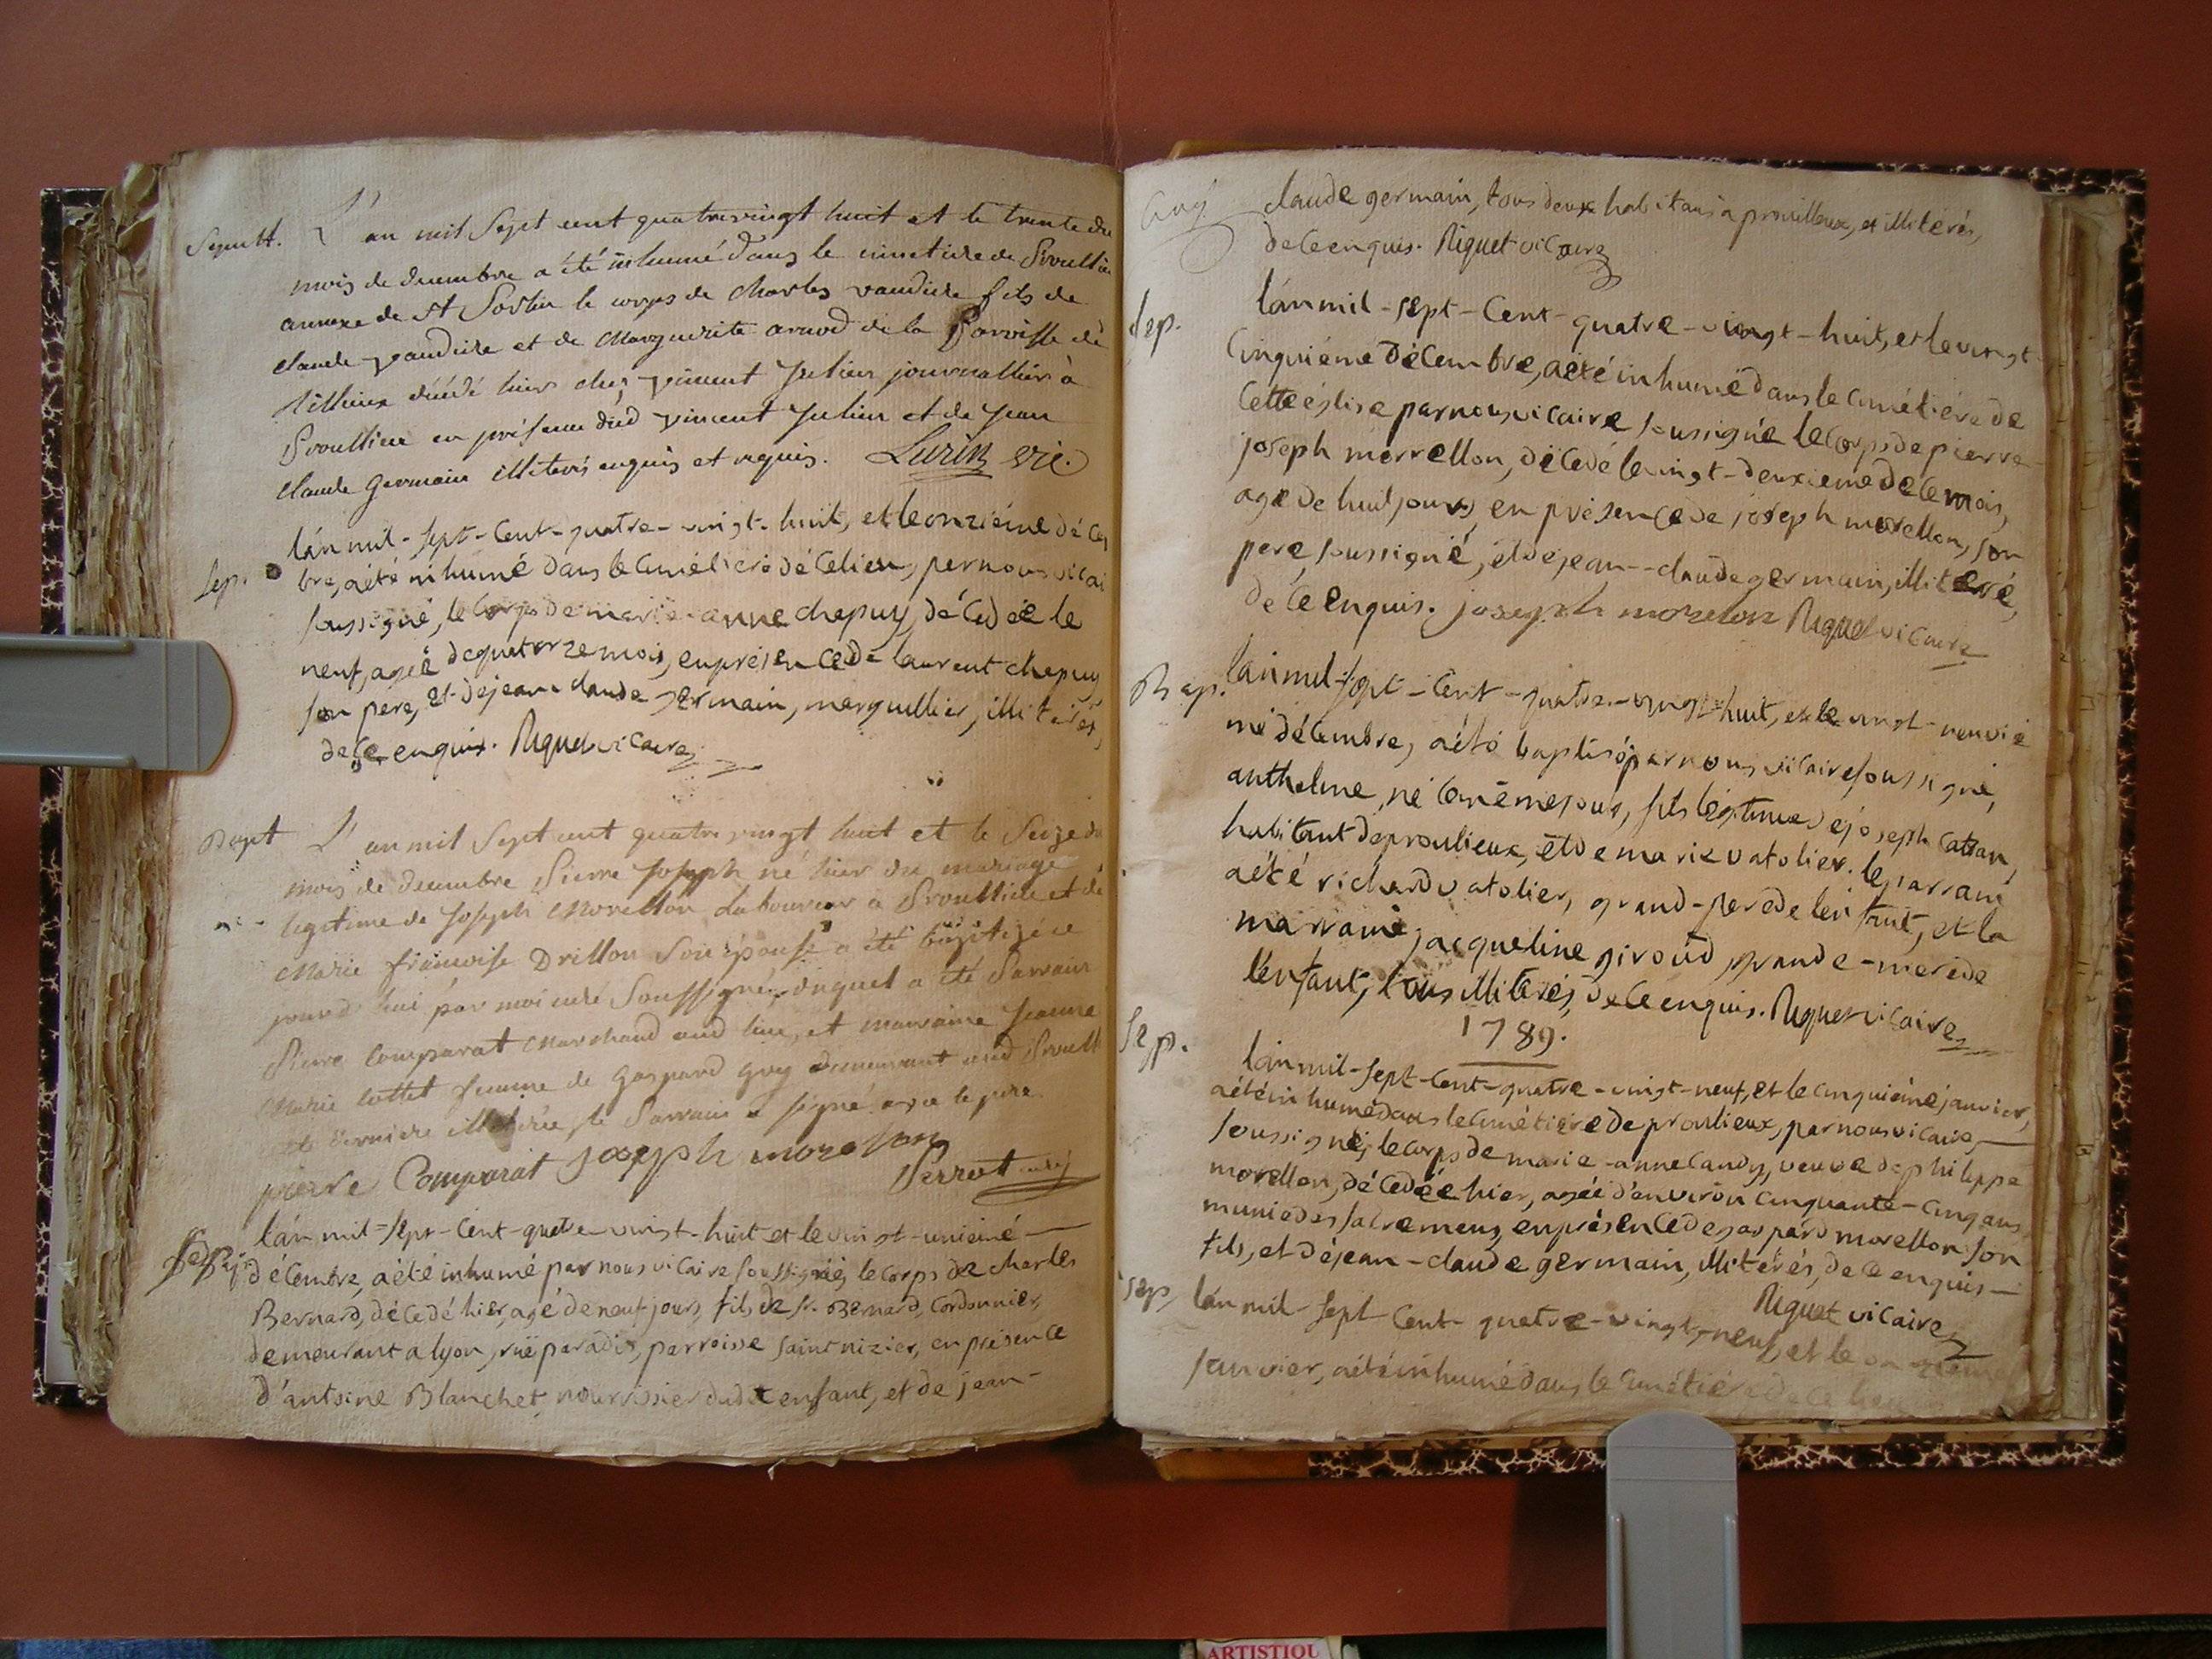 Sepult. L'an mil Sept cent quatrevingt huit et le trente du
mois de decembre a été inhumé dans le cimetiere de Proullieu
annexe de St Sorlin le corps de Charles vaudiere fils de
claude vaudiere et de Marguerite arnod de la Parroisse de
décédé hier chez vincent Julien journallier à
Proullieu en présence dud vincent Julien et de Jean
claude Germain illiterés enquis et requis. Lurin vic.
Sep. l'an mil-sept-cent-quatre-vingt-huit, et le onzième décem
bre, a été inhumé dans le cimétiere de ce lieu, par nous vicai
soussigné, le corps de marie-anne chepuy, décédée le
neuf, agée de quatorze mois, en présence de laurent chepuy
son pere, et de jean claude germain, marguillier, illiterés,
de ce enquis. Riquet vicaire
Bapt L'an mil Sept cent quatre vingt huit et le Seize du
mois de decembre Pierre Joseph né hier du mariage
legitime de Joseph Morellon Laboureur a Proullieu et de
Marie françoise Drillon Son épouse a été baptizé ce
jourd'hui par moi curé Soussigné, duquel a été Parrain
Pierre Comparat Marchand aud lieu, et marraine Jeanne
Marie cottet femme de Gaspard guy demeurant aud Proull
et derniere illiterée, le Parrain a signé avec le pere
pierre Comparat joseph morelon
Perret curé
Sep. l'an mil-sept-cent-quatre vingt-huit et le vingt-unieme
décembre, a été inhumé par nous vicaire soussigné, le corps de charles
Bernard, décédé hier, agé de neuf jours, fils de sr. Bernard, cordonnier,
demeurant a lyon, rüe paradis, parroisse saint nizier, en présence
d'antoine Blanchet nourrissier dudit enfant, et de jean-
claude germain, tous deux habitans a proullieux, et illiterés,
de ce enquis. Riquet vicaire
Sep. l'an mil-sept-cent-quatre-vingt-huit, et le vingt-
cinquiéme décembre, a été inhumé dans le cimétiére de
cette église par nous vicaire soussigné le corps de pierre-
joseph morrellon, décédé le vingt-deuxieme de ce mois,
agé de huit jours, en présence de joseph morellon, son
pere, soussigné, et de jean-claude germain, illiterré,
de ce enquis. joseph morelon Riquet vicaire
Bap. l'an mil-sept-cent-quatre-vingt-huit, et le vingt-neuvié
me décembre, a été baptisé par nous vicaire soussigné,
anthelme, né le même jour, fils légitime de joseph
habitant de proulieux, et de marie vatolier. le parrain
a été richard vatolier, grand-pere de l'enfant, et la
marraine jacqueline giroud, grande-mere de
l'enfant, tous illiterés, de ce enquis. Riquet vicaire
1789.
Sep. l'an mil-sept-cent-quatre-vingt-neuf, et le cinquiéme janvier,
a été inhumé dans le cimétiere de proulieux, par nous vicaire
soussigné, le corps de marie-anne candy, veuve de philippe
morellon, décédée hier, agée d'environ cinquante-cinq ans
munie des sacremens, en présence de gaspard morellon son
fils, et de jean-claude germain, illiterés, de ce enquis
Riquet vicaire
Sep. l'an mil-sept-cent-quatre-vingt-neuf, et le onzième
janvier, a été inhumé dans le cimétiére de ce lieu